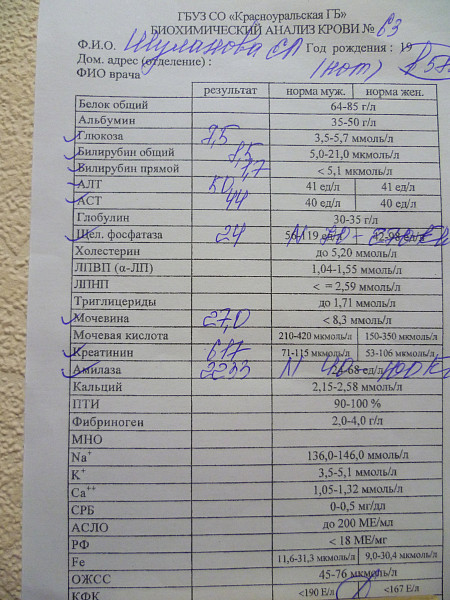 ГБУЗ СО «Красноуральская ГБ»
БИОХИМИЧЕСКИЙ АНАЛИЗ КРОВИ № 63
Ф.И.О. Год рождения : 19
Дом. адрес (отделение) :
ФИО врача
результат норма муж. норма жен.
Белок общий 64-85 г/л
Альбумин 35-50 г/л
Глюкоза 7,5 3,5-5,7 ммоль/л
Билирубин общий 8,5 5,0-21,0 мкмоль/л
Билирубин прямой 1,7 < 5,1 мкмоль/л
АЛТ 50 41 ед/л 41 ед/л
АСТ 44 40 ед/л 40 ед/л
Глобулин 30-35 г/л
Щел. фосфатаза 24 N
Холестерин до 5,20 ммоль/л
ЛПВП (α-ЛП) 1,04-1,55 ммоль/л
ЛПНП < = 2,59 ммоль/л
Триглицериды до 1,71 ммоль/л
Мочевина 27,0 < 8,3 ммоль/л
Мочевая кислота 210-420 мкмоль/л 150-350 мкмоль/л
Креатинин 617 71-115 мкмоль/л 53-106 мкмоль/л
Амилаза 2233 N
Кальций 2,15-2,58 ммоль/л
ПТИ 90-100 %
Фибриноген 2,0-4,0 г/л
МНО
Na⁺ 136,0-146,0 ммоль/л
K⁺ 3,5-5,1 ммоль/л
Ca⁺⁺ 1,05-1,32 ммоль/л
СРБ 0-0,5 мг/дл
АСЛО до 200 МЕ/мл
РФ < 18 МЕ/мг
Fe 11,6-31,3 мкмоль/л 9,0-30,4 мкмоль/л
ОЖСС 45-76 мкмоль/л
КФК <190 Е/л <167 Е/л